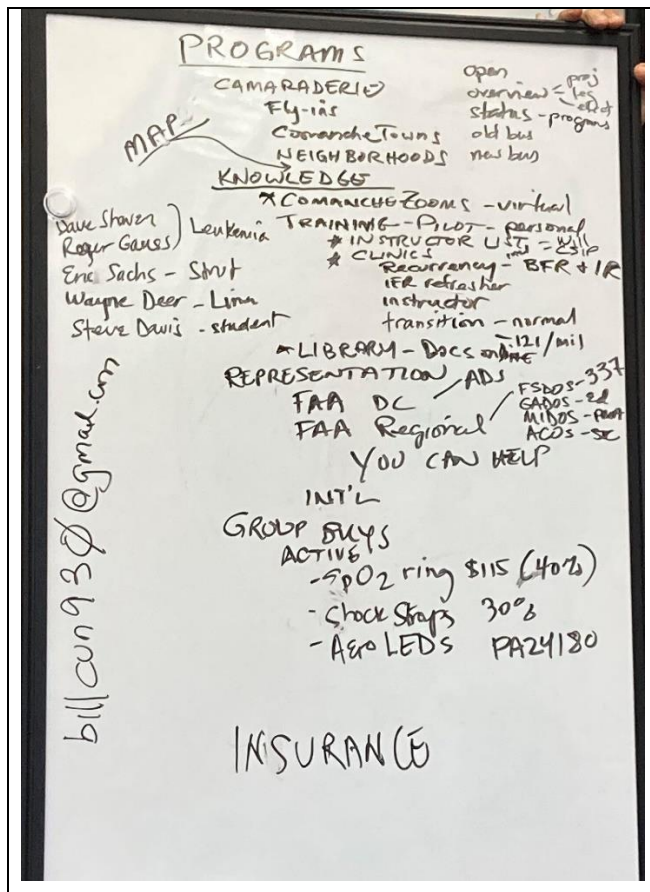 PROGRAMS
CAMARADERIE
Fly-ins
Comanche Towns
NEIGHBORHOODS
MAP
open
overview - proj
status - programs
old bus
new bus
KNOWLEDGE
* COMANCHE ZOOMS - virtual
TRAINING - PILOT - personal
* INSTRUCTOR LIST =
* CLINICS
Recurrency - BFR + IR
IFR refresher
instructor
transition - normal
- 121/mil
* LIBRARY - Docs online
Dave
Roger
Leukemia
Eric Sachs - Strut
Wayne Deer -
Steve Davis - student
REPRESENTATION
FAA DC / ADS
FAA Regional / FSDOS - 337
GADOS - 2d
MIDOS -
ACOS -
YOU CAN HELP
INT'L
GROUP BUYS
ACTIVE
- SpO2 ring $115 (40%)
- Shock Straps 30%
- Aero LEDs PA24180
INSURANCE
billcun93Ø@gmail.com